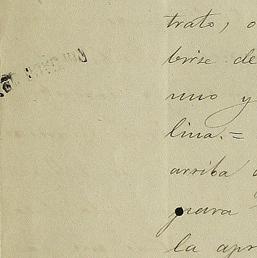 trato, o
birse de
uno y
lina.=
arriba
para
la apr